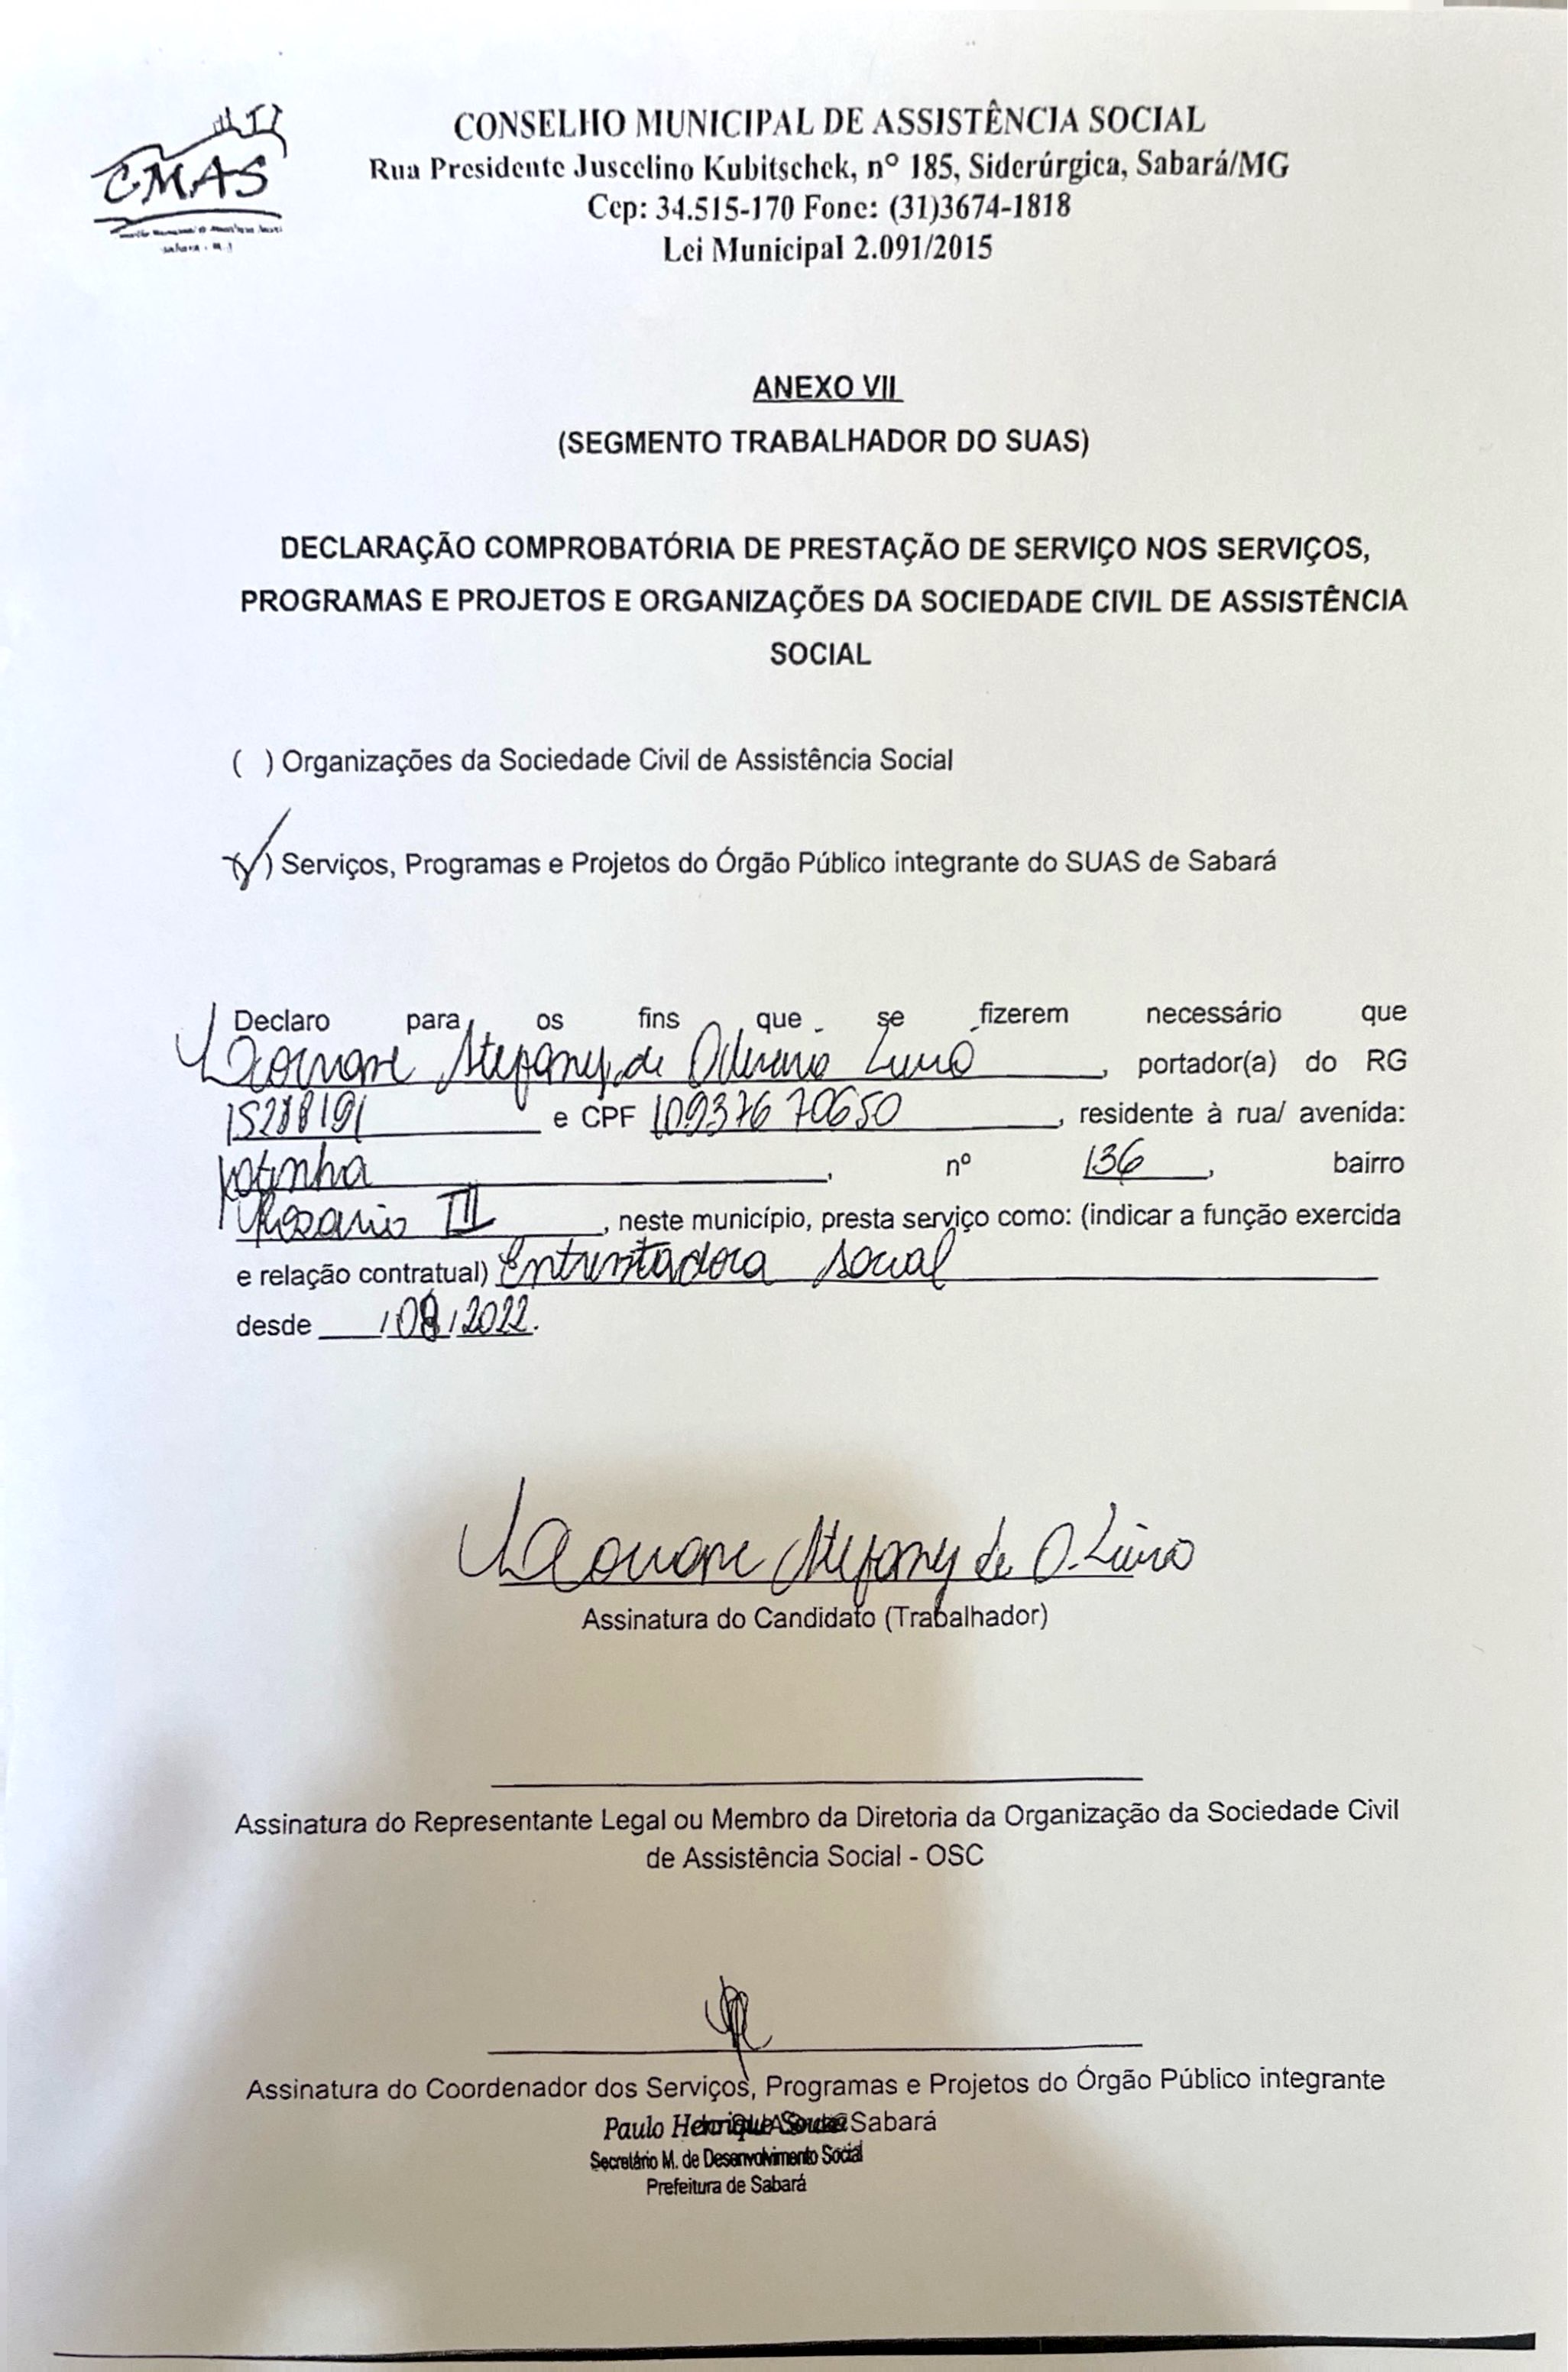 CMAS
CONSELHO MUNICIPAL DE ASSISTÊNCIA SOCIAL
Rua Presidente Juscelino Kubitschek, nº 185, Siderúrgica, Sabará/MG
Cep: 34.515-170 Fone: (31)3674-1818
Lei Municipal 2.091/2015
ANEXO VII
(SEGMENTO TRABALHADOR DO SUAS)
DECLARAÇÃO COMPROBATÓRIA DE PRESTAÇÃO DE SERVIÇO NOS SERVIÇOS,
PROGRAMAS E PROJETOS E ORGANIZAÇÕES DA SOCIEDADE CIVIL DE ASSISTÊNCIA
SOCIAL
( ) Organizações da Sociedade Civil de Assistência Social
(X) Serviços, Programas e Projetos do Órgão Público integrante do SUAS de Sabará
Declaro para os fins que se fizerem necessário que
Stefany de Oliveira, portador(a) do RG
15288191 e CPF 10937670650, residente à rua/ avenida:
nº 136, bairro
Rosario III, neste município, presta serviço como: (indicar a função exercida
e relação contratual) Entrevistadora social
desde / /2022.
Stefany de O.
Assinatura do Candidato (Trabalhador)
Assinatura do Representante Legal ou Membro da Diretoria da Organização da Sociedade Civil
de Assistência Social - OSC
Assinatura do Coordenador dos Serviços, Programas e Projetos do Órgão Público integrante
Sabará
Paulo Henrique Souza
Secretário M. de Desenvolvimento Social
Prefeitura de Sabará